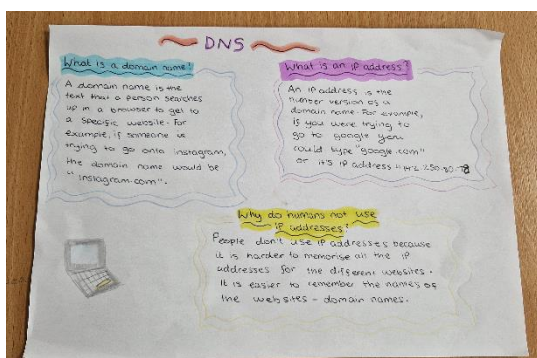 DNS
What is a domain name?
A domain name is the
text that a person searches
up in a browser to get to
a specific website. For
example, if someone is
trying to go onto instagram,
the domain name would be
"instagram.com".
What is an IP address?
An IP address is the
number version of a
domain name. For example,
if you were trying to
go to google you
could type "google.com"
or it's IP address "142.250.80.78
Why do humans not use
IP addresses?
People don't use IP addresses because
it is harder to memorise all the IP
addresses for the different websites.
It is easier to remember the names of
the websites - domain names.